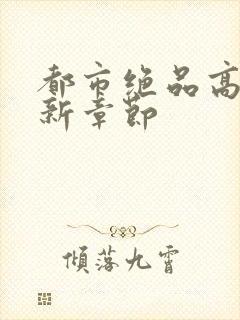 都市绝品高
新章节
倾落九霄